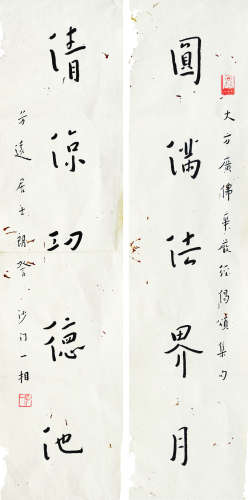 大方廣佛華嚴經偈頌集句
圓滿法界月
清涼功德池
芳遠居士朗詧 沙門一相